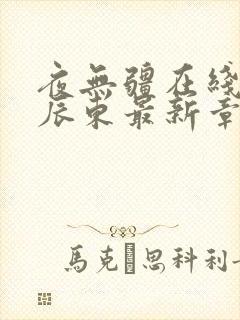 夜無疆在綫
辰東最新章
馬克 思科利